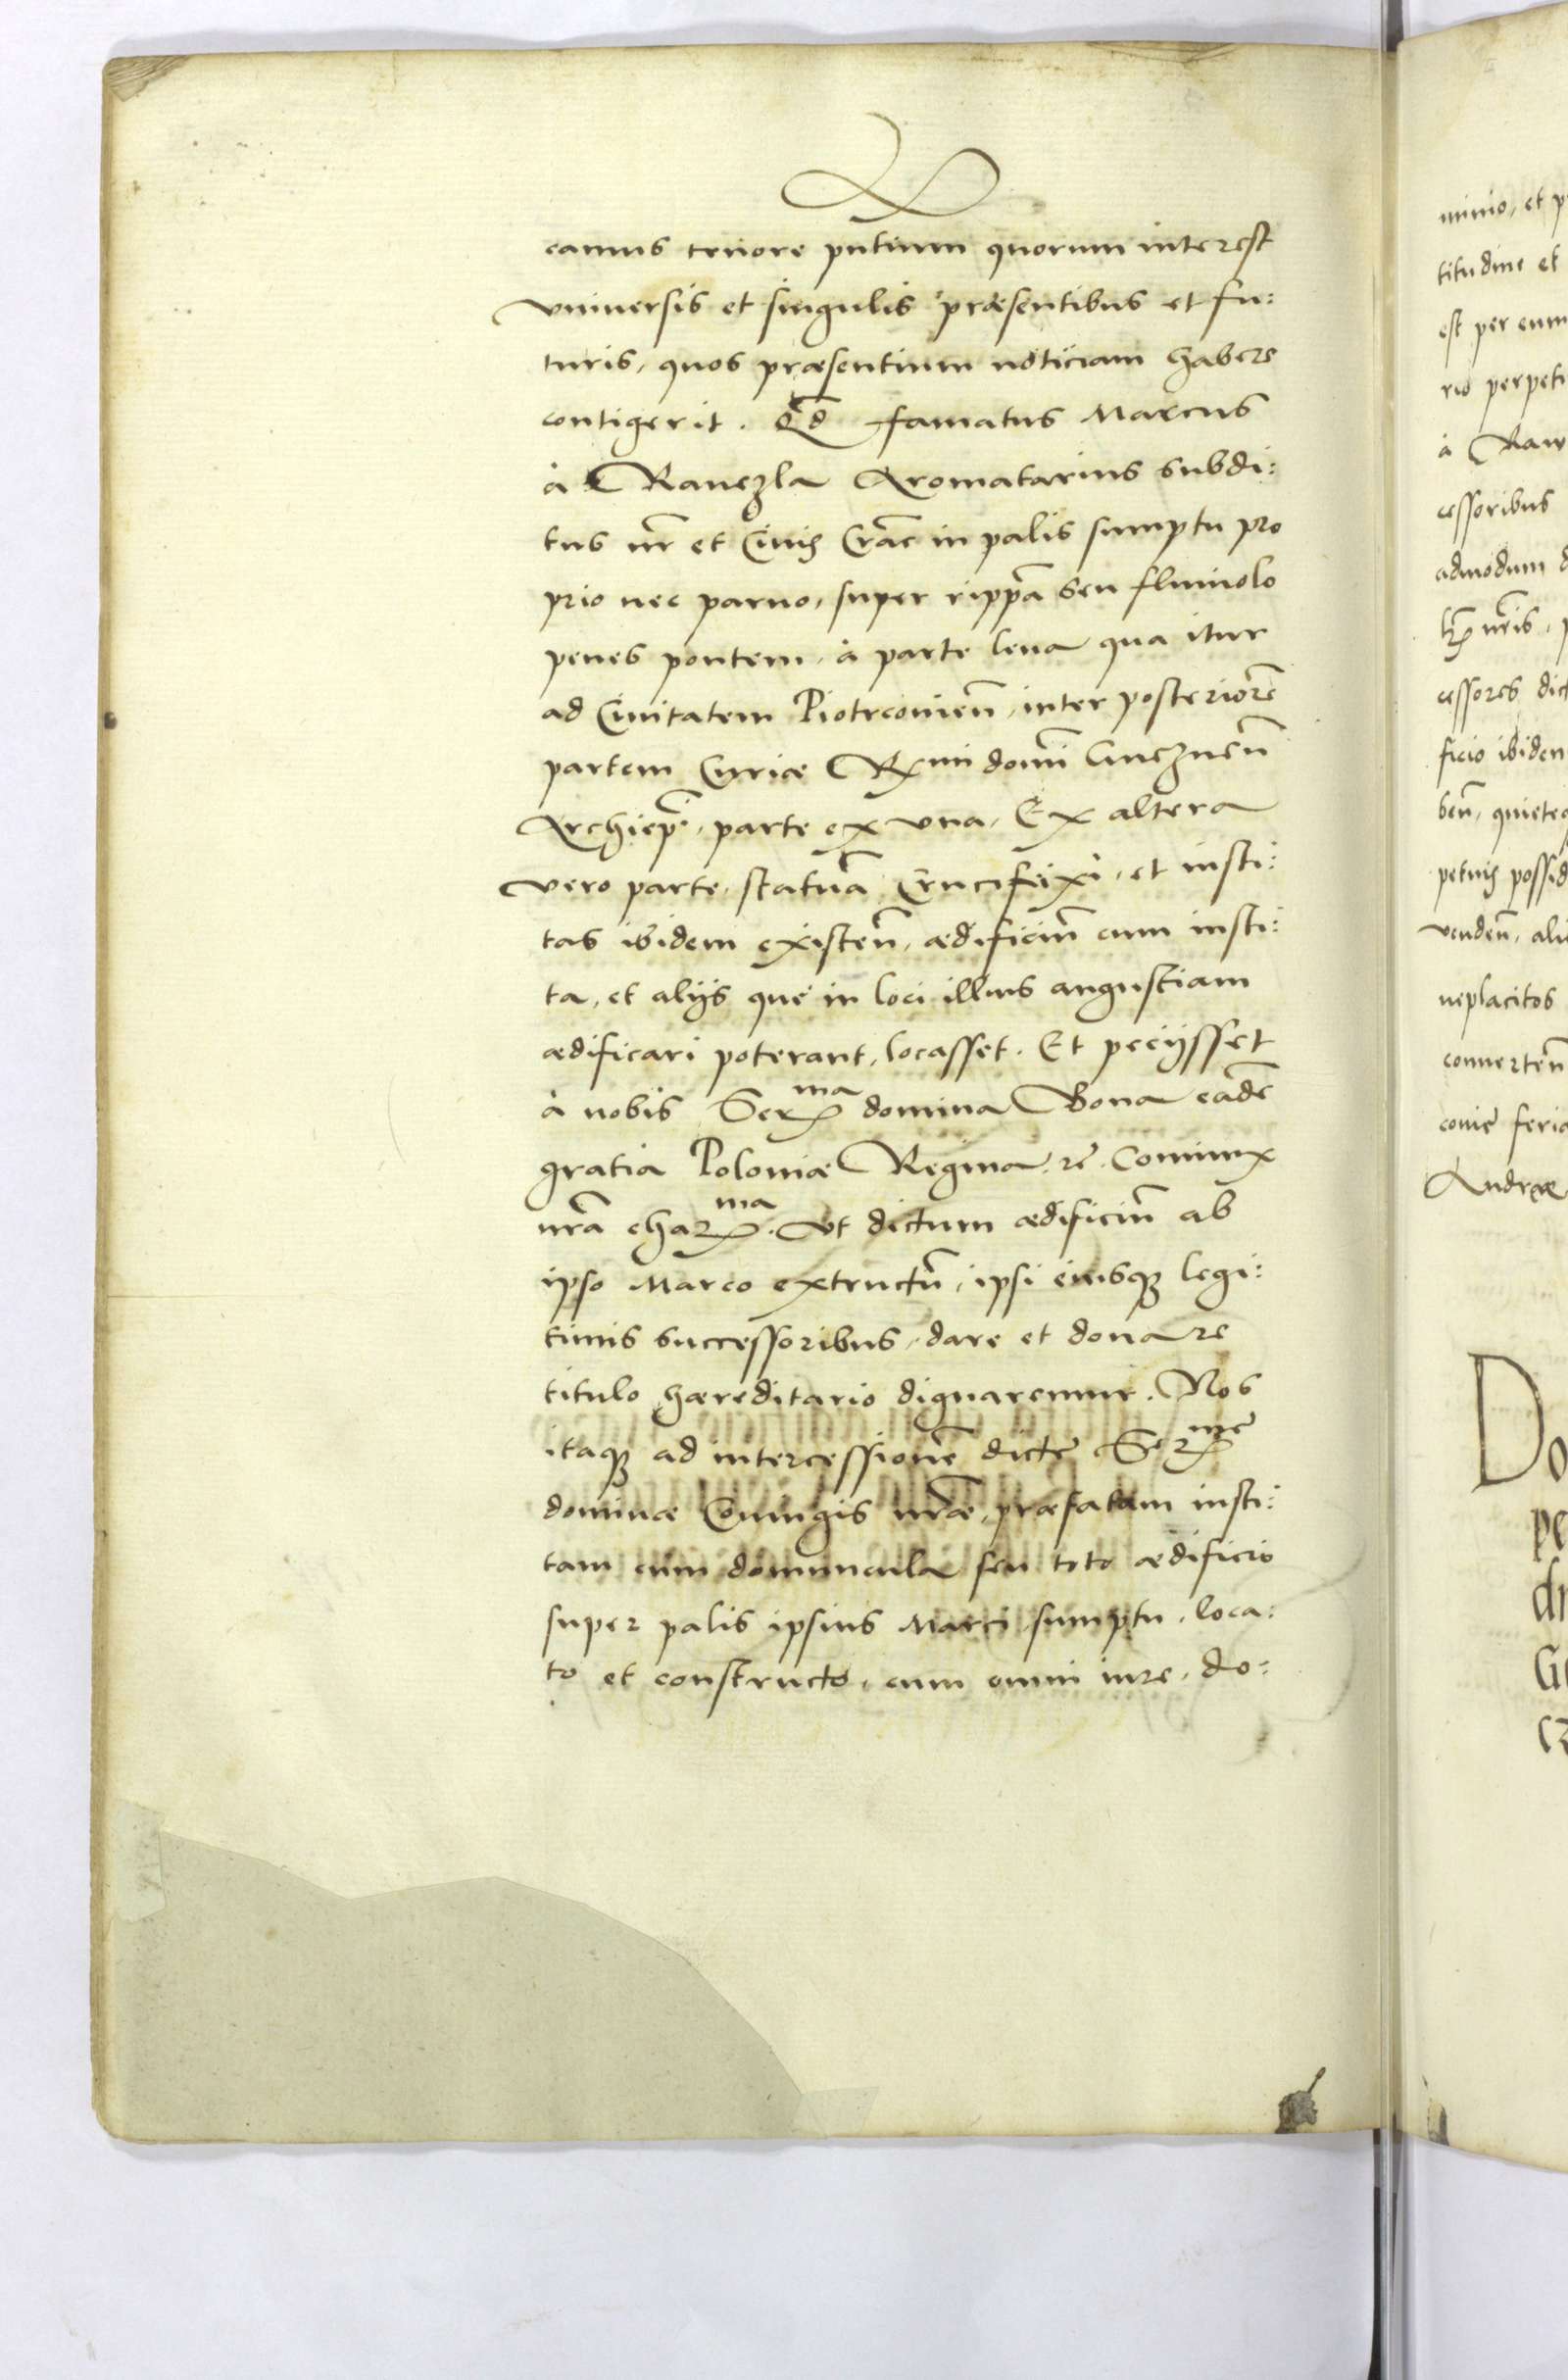 camus tenore pntium quorum interest
vniuersis et singulis præsentibus et fu:
turis, quos præsentium noticiam habere
contigerit. Qd famatus Marcus
à Rawczla Aromatarius subdi:
tus nr et Ciuis Crac in palis sumptu pro
prio nec paruo, super rippa seu fluuiolo
penes pontem, à parte leua qua itur
ad Ciuitatem Piotrcouien, inter posteriore
partem Curiæ Rmi domi Gneznen
Archiepi, parte ex vna, Ex altera
vero parte, statua Crucifixi, et insti:
tas ibidem existen, ædificiu cum insti:
ta, et alijs que in loci illius angustiam
ædificari poterant, locasset. Et pecijsset
à nobis Serma domina Bona eade
gratia Poloniæ Regina, &c. Coniunx
nra charma. Vt dictum ædificiu ab
ipso Marco extructu, ipsi eiusq legi:
timis successoribus, dare et donare
titulo hæreditario dignaremur. Nos
itaq ad intercessione dicte Serme
dominæ Coniugis nræ, præfatam insti:
tam cum domuncula seu toto ædificio
super palis ipsius Marci sumptu, loca:
to et constructo, cum omni iure, do:
minio, et p
titudine et
est per eum
rio perpet
à Raw
cessoribus
admodum d
nris,
cessores dict
ficio ibidem
ben, quiete
petuis possid
venden, ali
neplacitos
conuerten
couie feria
Andreæ
Do
pe
di
G
cz